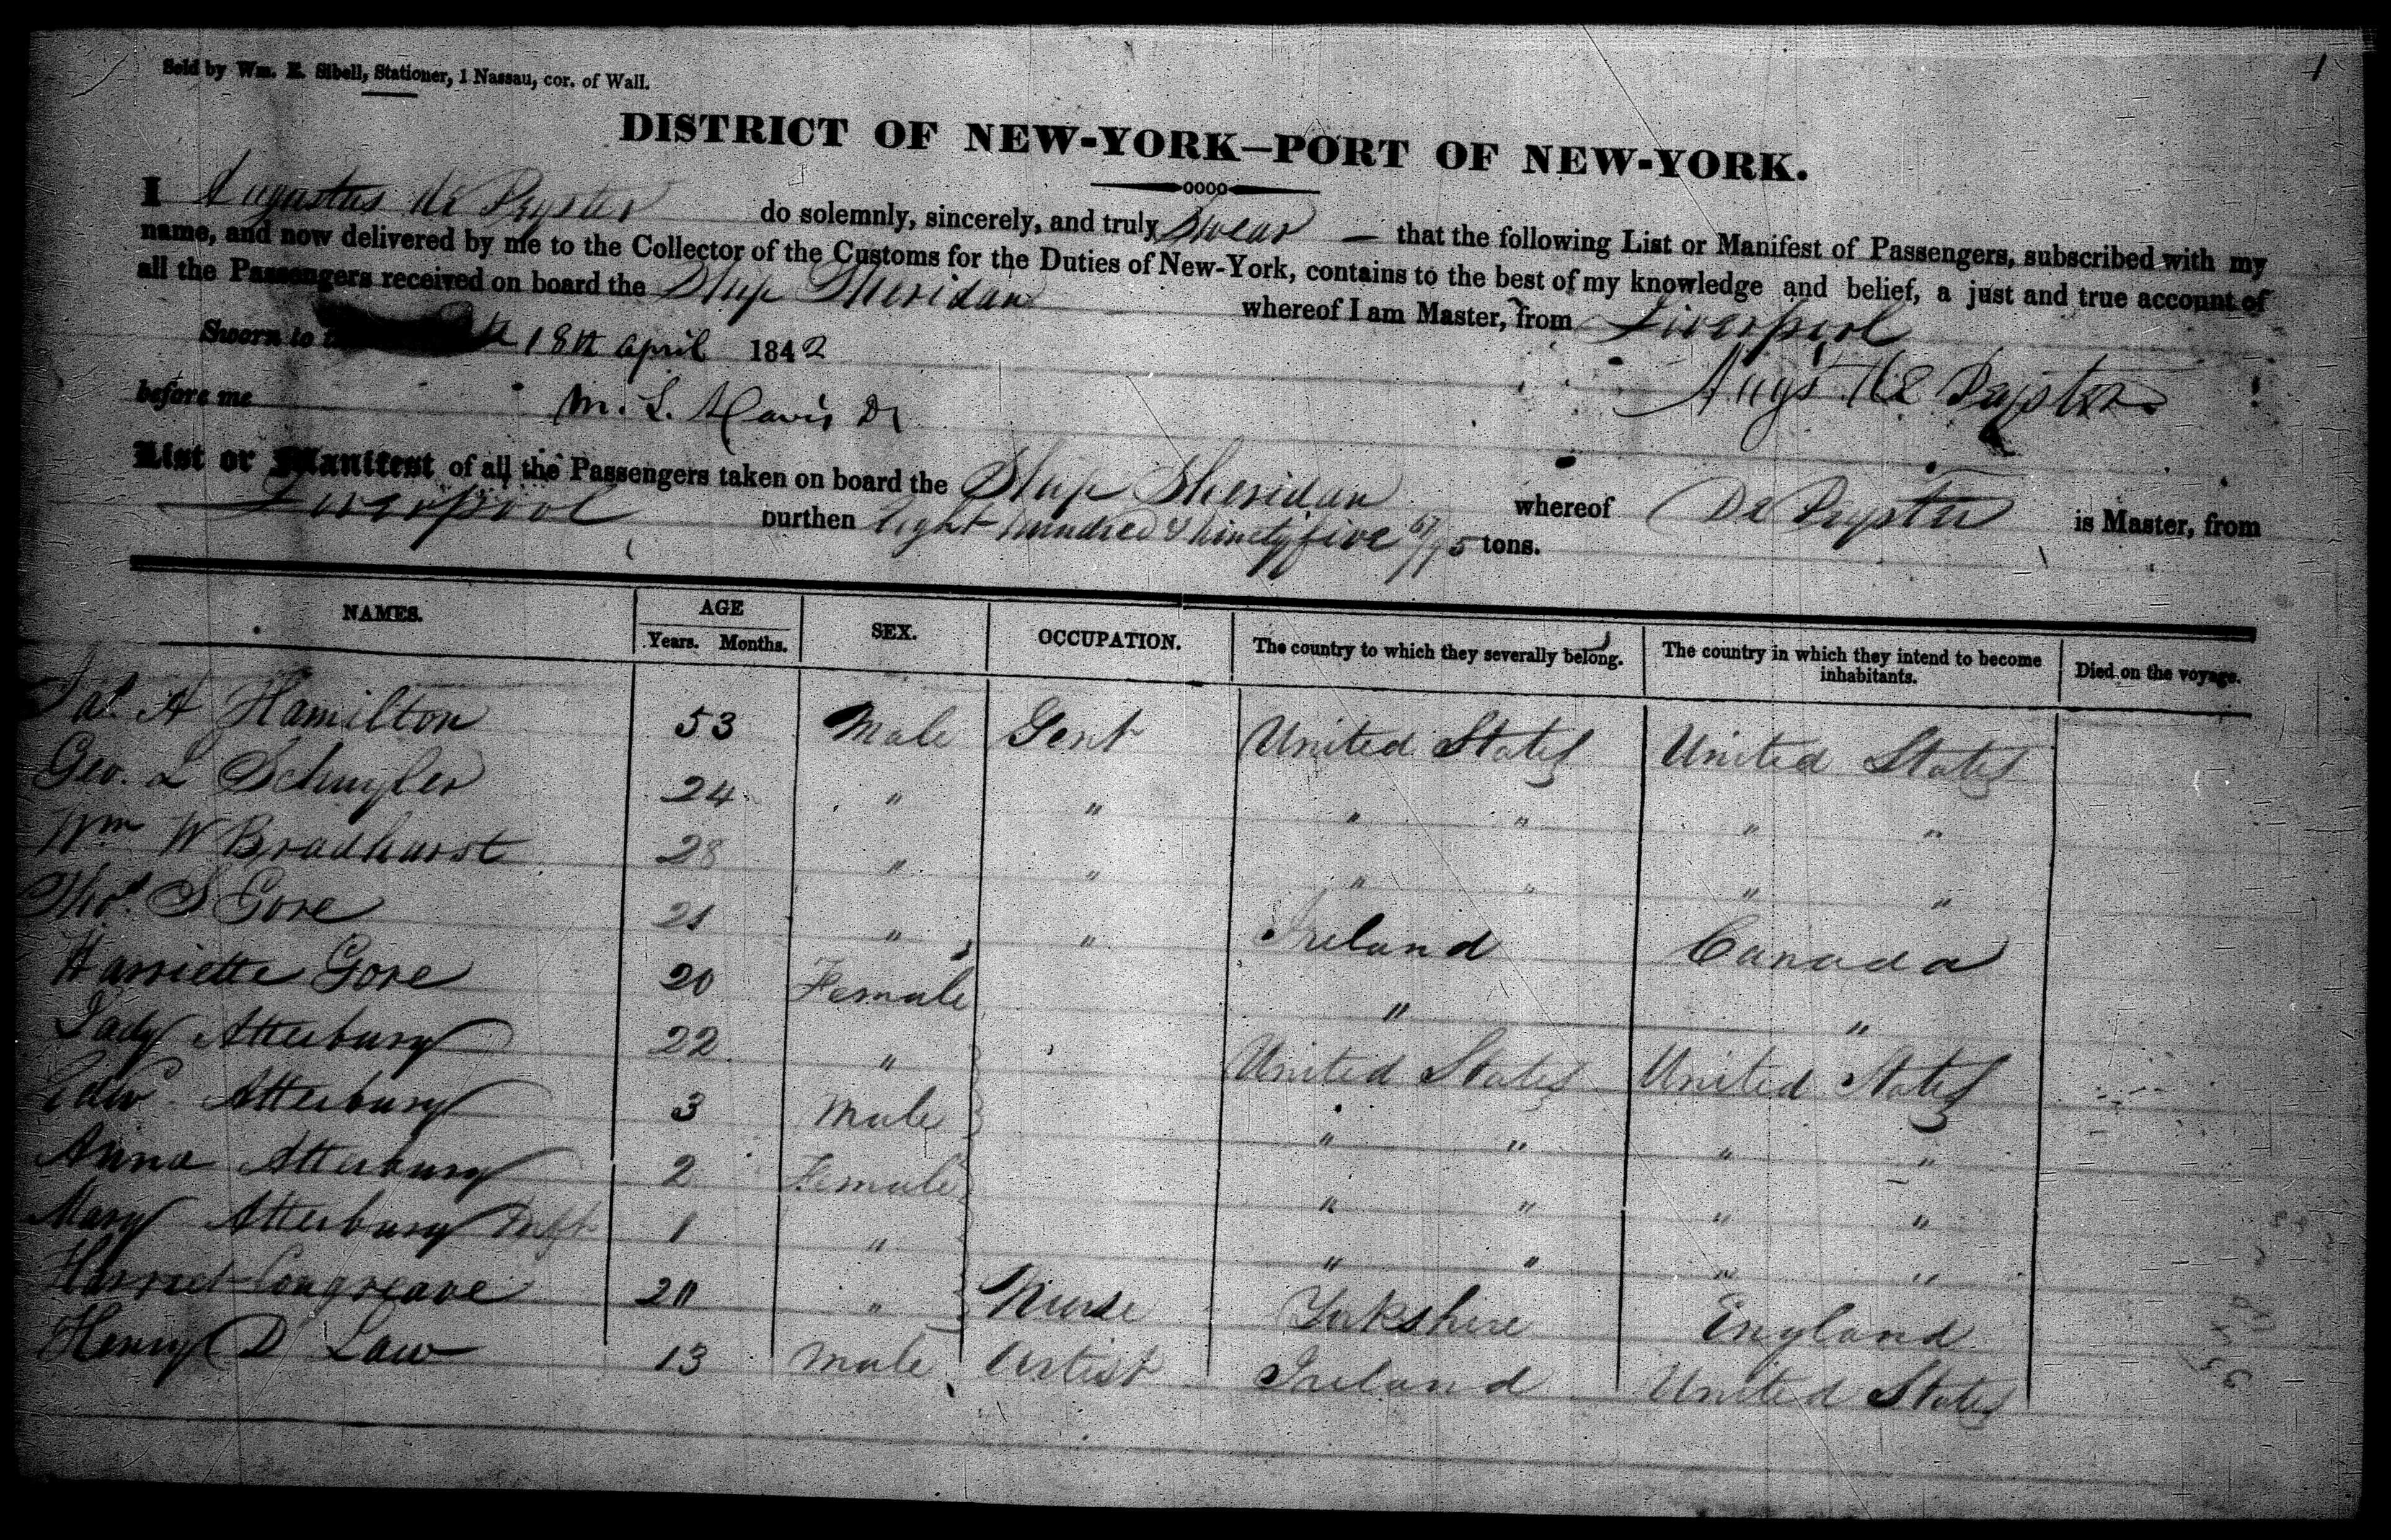 1
Sold by Wm. E. Sibell, Stationer, 1 Nassau, cor. of Wall.
DISTRICT OF NEW-YORK—PORT OF NEW-YORK.
I Augustus De Peyster do solemnly, sincerely, and truly Swear — that the following List or Manifest of Passengers, subscribed with my
name, and now delivered by me to the Collector of the Customs for the Duties of New-York, contains to the best of my knowledge and belief, a just and true account of
all the Passengers received on board the Ship Sheridan whereof I am Master, from Liverpool
Sworn to 18th April 1842
Augs De Peyster
before me M. L. Davis
List or Manifest of all the Passengers taken on board the Ship Sheridan whereof De Peyster is Master, from
Liverpool burthen Eight hundred & ninety five 67/95 tons.
NAMES. AGE SEX. OCCUPATION. The country to which they severally belong. The country in which they intend to become Died on the voyage.
Years. Months. inhabitants.
Jas. A Hamilton 53 Male Gent United States United States
Geo. L Schuyler 24 " " " " " "
Wm W Bradhurst 28 " " " " " "
Thos. S Gore 21 " " Ireland Canada
Harriette Gore 20 Female " "
Lady Atterbury 22 " United States United States
Edwd. Atterbury 3 Male " " " "
Anna Atterbury 2 Female " " " "
Mary Atterbury Inft 1 " " " " "
Harriet Congreave 20 " Nurse Yorkshire England
Henry D Law 13 Male Artist Ireland United States